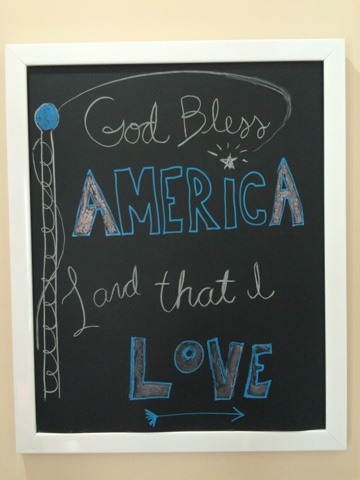 God Bless
AMERiCA
Land that I
LOVE